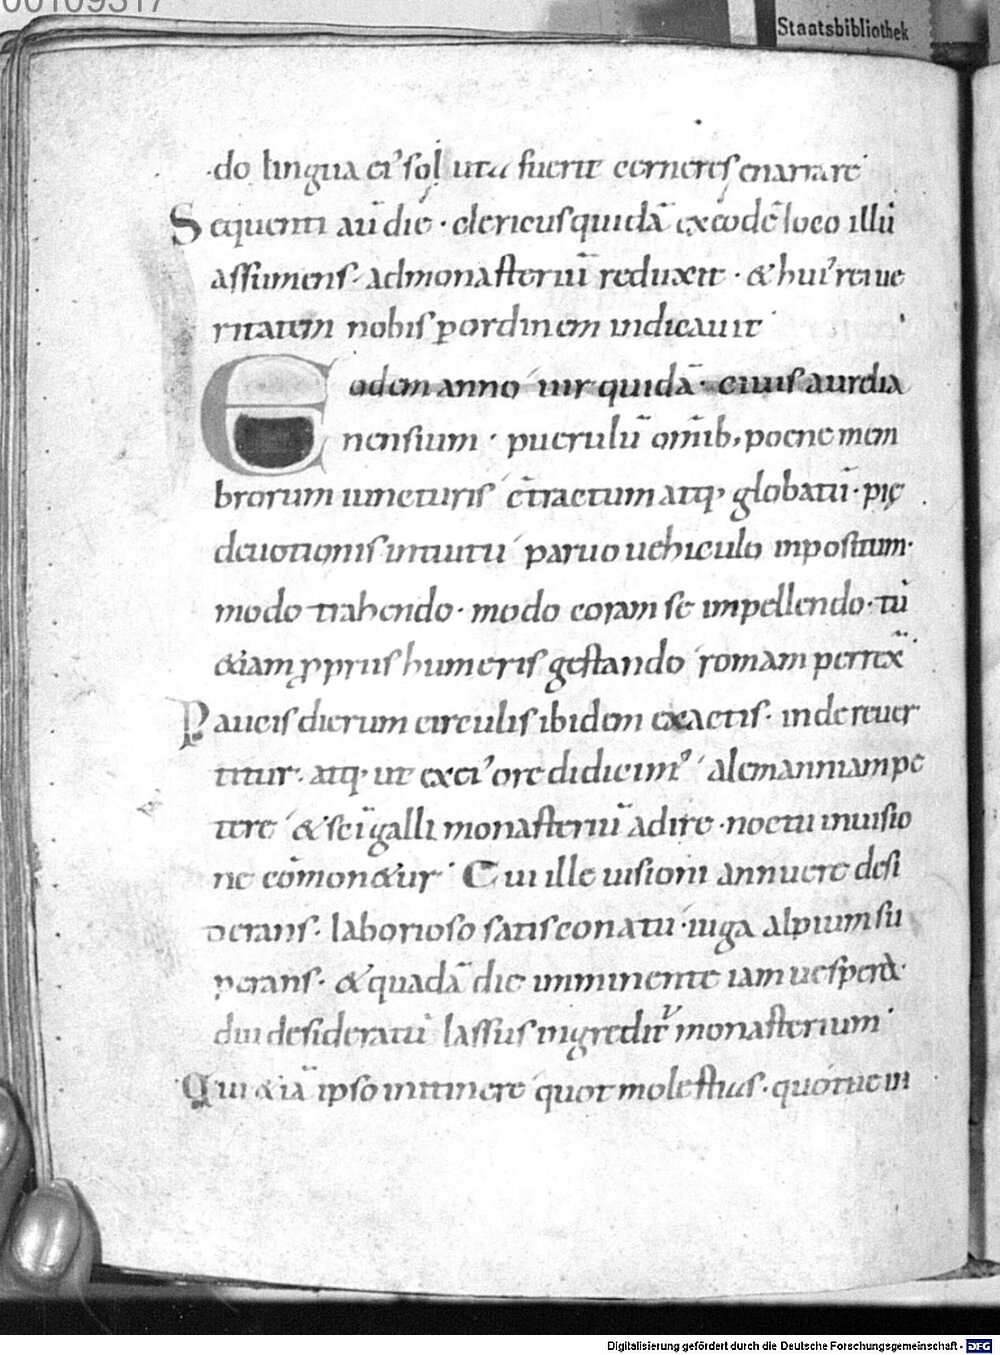 00109317
Staatsbibliothek
do lingua ei' soluta fuerit cerneres enarrare
Sequenti aū die · clericus quidā ex eodē loco illū
assumens · ad monasteriū reduxit · & hui' rei ue
ritatem nobis p ordinem indicauit
Eodem anno uir quidā · ciuis aurelia
nensium · puerulū omīb; poene mem
brorum iuncturis cn̄tractum atq; globatū · pię
deuotionis intuitu paruo uehiculo inpositum ·
modo trahendo · modo coram se impellendo · tū
&iam ppriis humeris gestando romam perrex̄
Paucis dierum circulis ibidem exactis · inde reuer
titur · atq; ut ex ei' ore didicim' alemanniam pe
tere & sc̄i galli monasteriū adire · noctu in uisio
ne cōmon&ur Cui ille uisioni annuere desi
derans · laborioso satis conatu · iuga alpium su
perans · & quadā die imminente iam uespera ·
diu desideratū lassus ingredit' monasterium
Qui &iā ipso in itinere quot molestias · quotue in
Digitalisierung gefördert durch die Deutsche Forschungsgemeinschaft - DFG